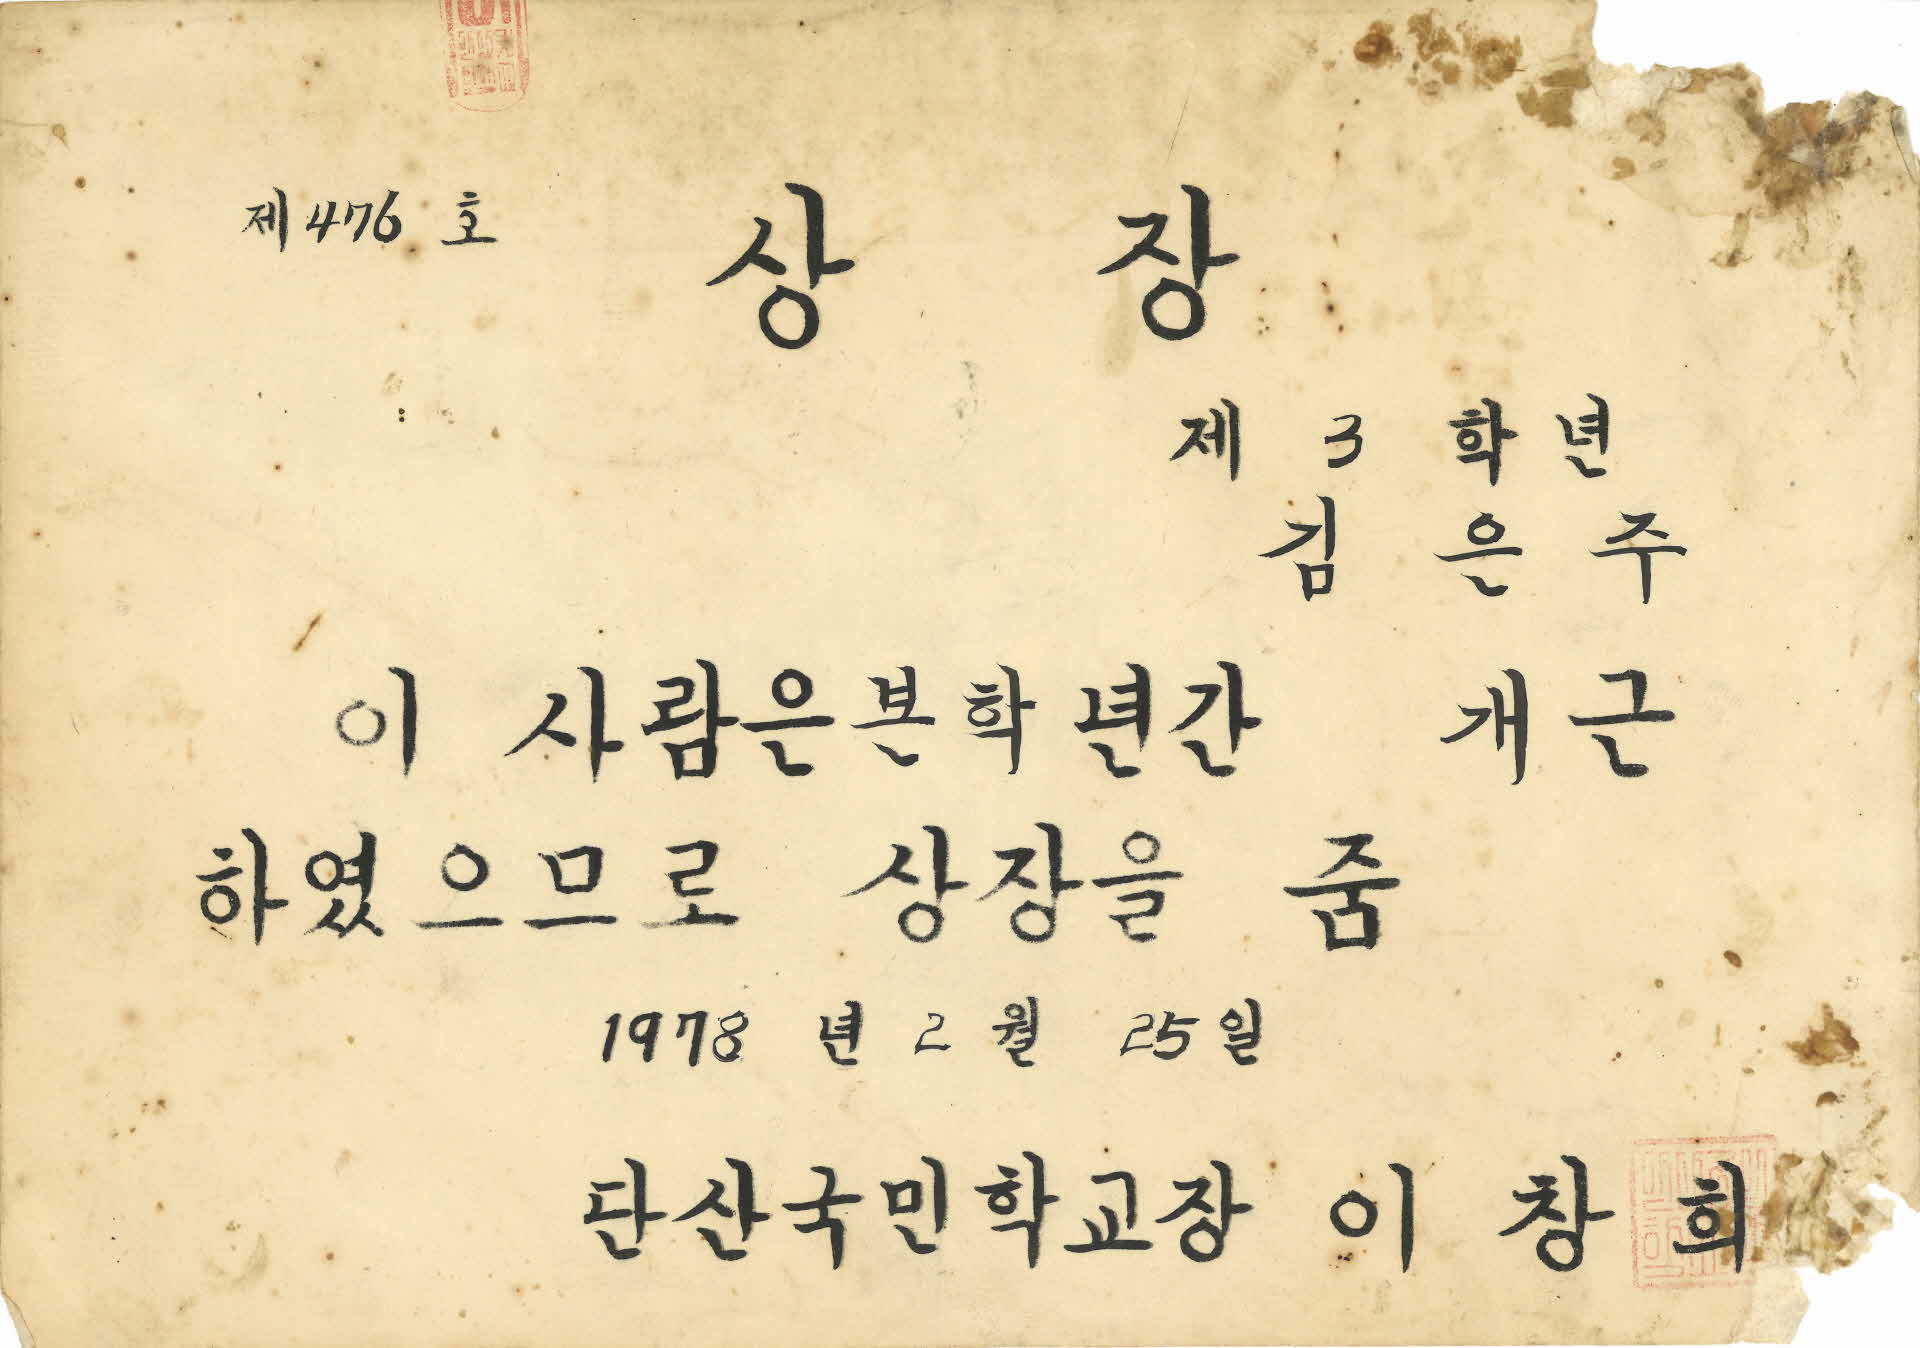 제476 호
상 장
제 3 학 년
김 은 주
이 사람은본학년간 개근
하였으므로 상장을 줌
1978 년 2 월 25일
단산국민학교장 이 창 희